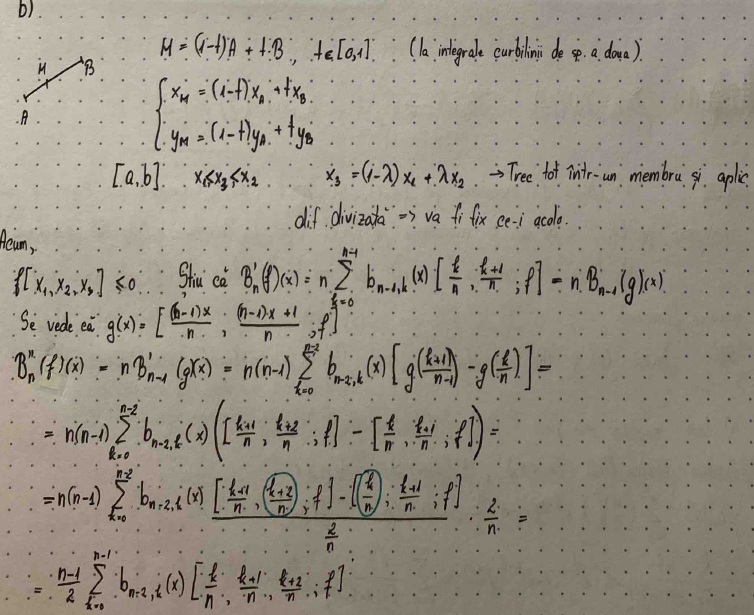 b)
M = (1-t)A + t·B, t∈[0,1] (la integrale curbilinii de sp. a doua)
A M B
{ x_M = (1-t)x_A + t x_B
{ y_M = (1-t)y_A + t y_B
[a,b] x_1 ≤ x_3 ≤ x_2 x_3 = (1-λ) x_1 + λ x_2 → Trec tot într-un membru și aplic
dif. divizată => va fi fix ce-i acolo.
Acum,
f[x_1, x_2, x_3] ≤ 0 Știu că B_n'(f)(x) = n ∑_{k=0}^{n-1} b_{n-1,k}(x) [k/n, (k+1)/n ; f] = n B_{n-1}(g)(x)
Se vede că g(x) = [(n-1)x/n, ((n-1)x+1)/n ; f]
B_n''(f)(x) = n B'_{n-1}(g)(x) = n(n-1) ∑_{k=0}^{n-2} b_{n-2,k}(x) [g((k+1)/(n-1)) - g(k/n)] =
= n(n-1) ∑_{k=0}^{n-2} b_{n-2,k}(x) ([(k+1)/n, (k+2)/n ; f] - [k/n, (k+1)/n ; f]) =
= n(n-1) ∑_{k=0}^{n-2} b_{n-2,k}(x) ([(k+1)/n, (k+2)/n ; f] - [k/n, (k+1)/n ; f])/(2/n) · 2/n =
= (n-1)/2 ∑_{k=0}^{n-1} b_{n-2,k}(x) [k/n, (k+1)/n, (k+2)/n ; f]